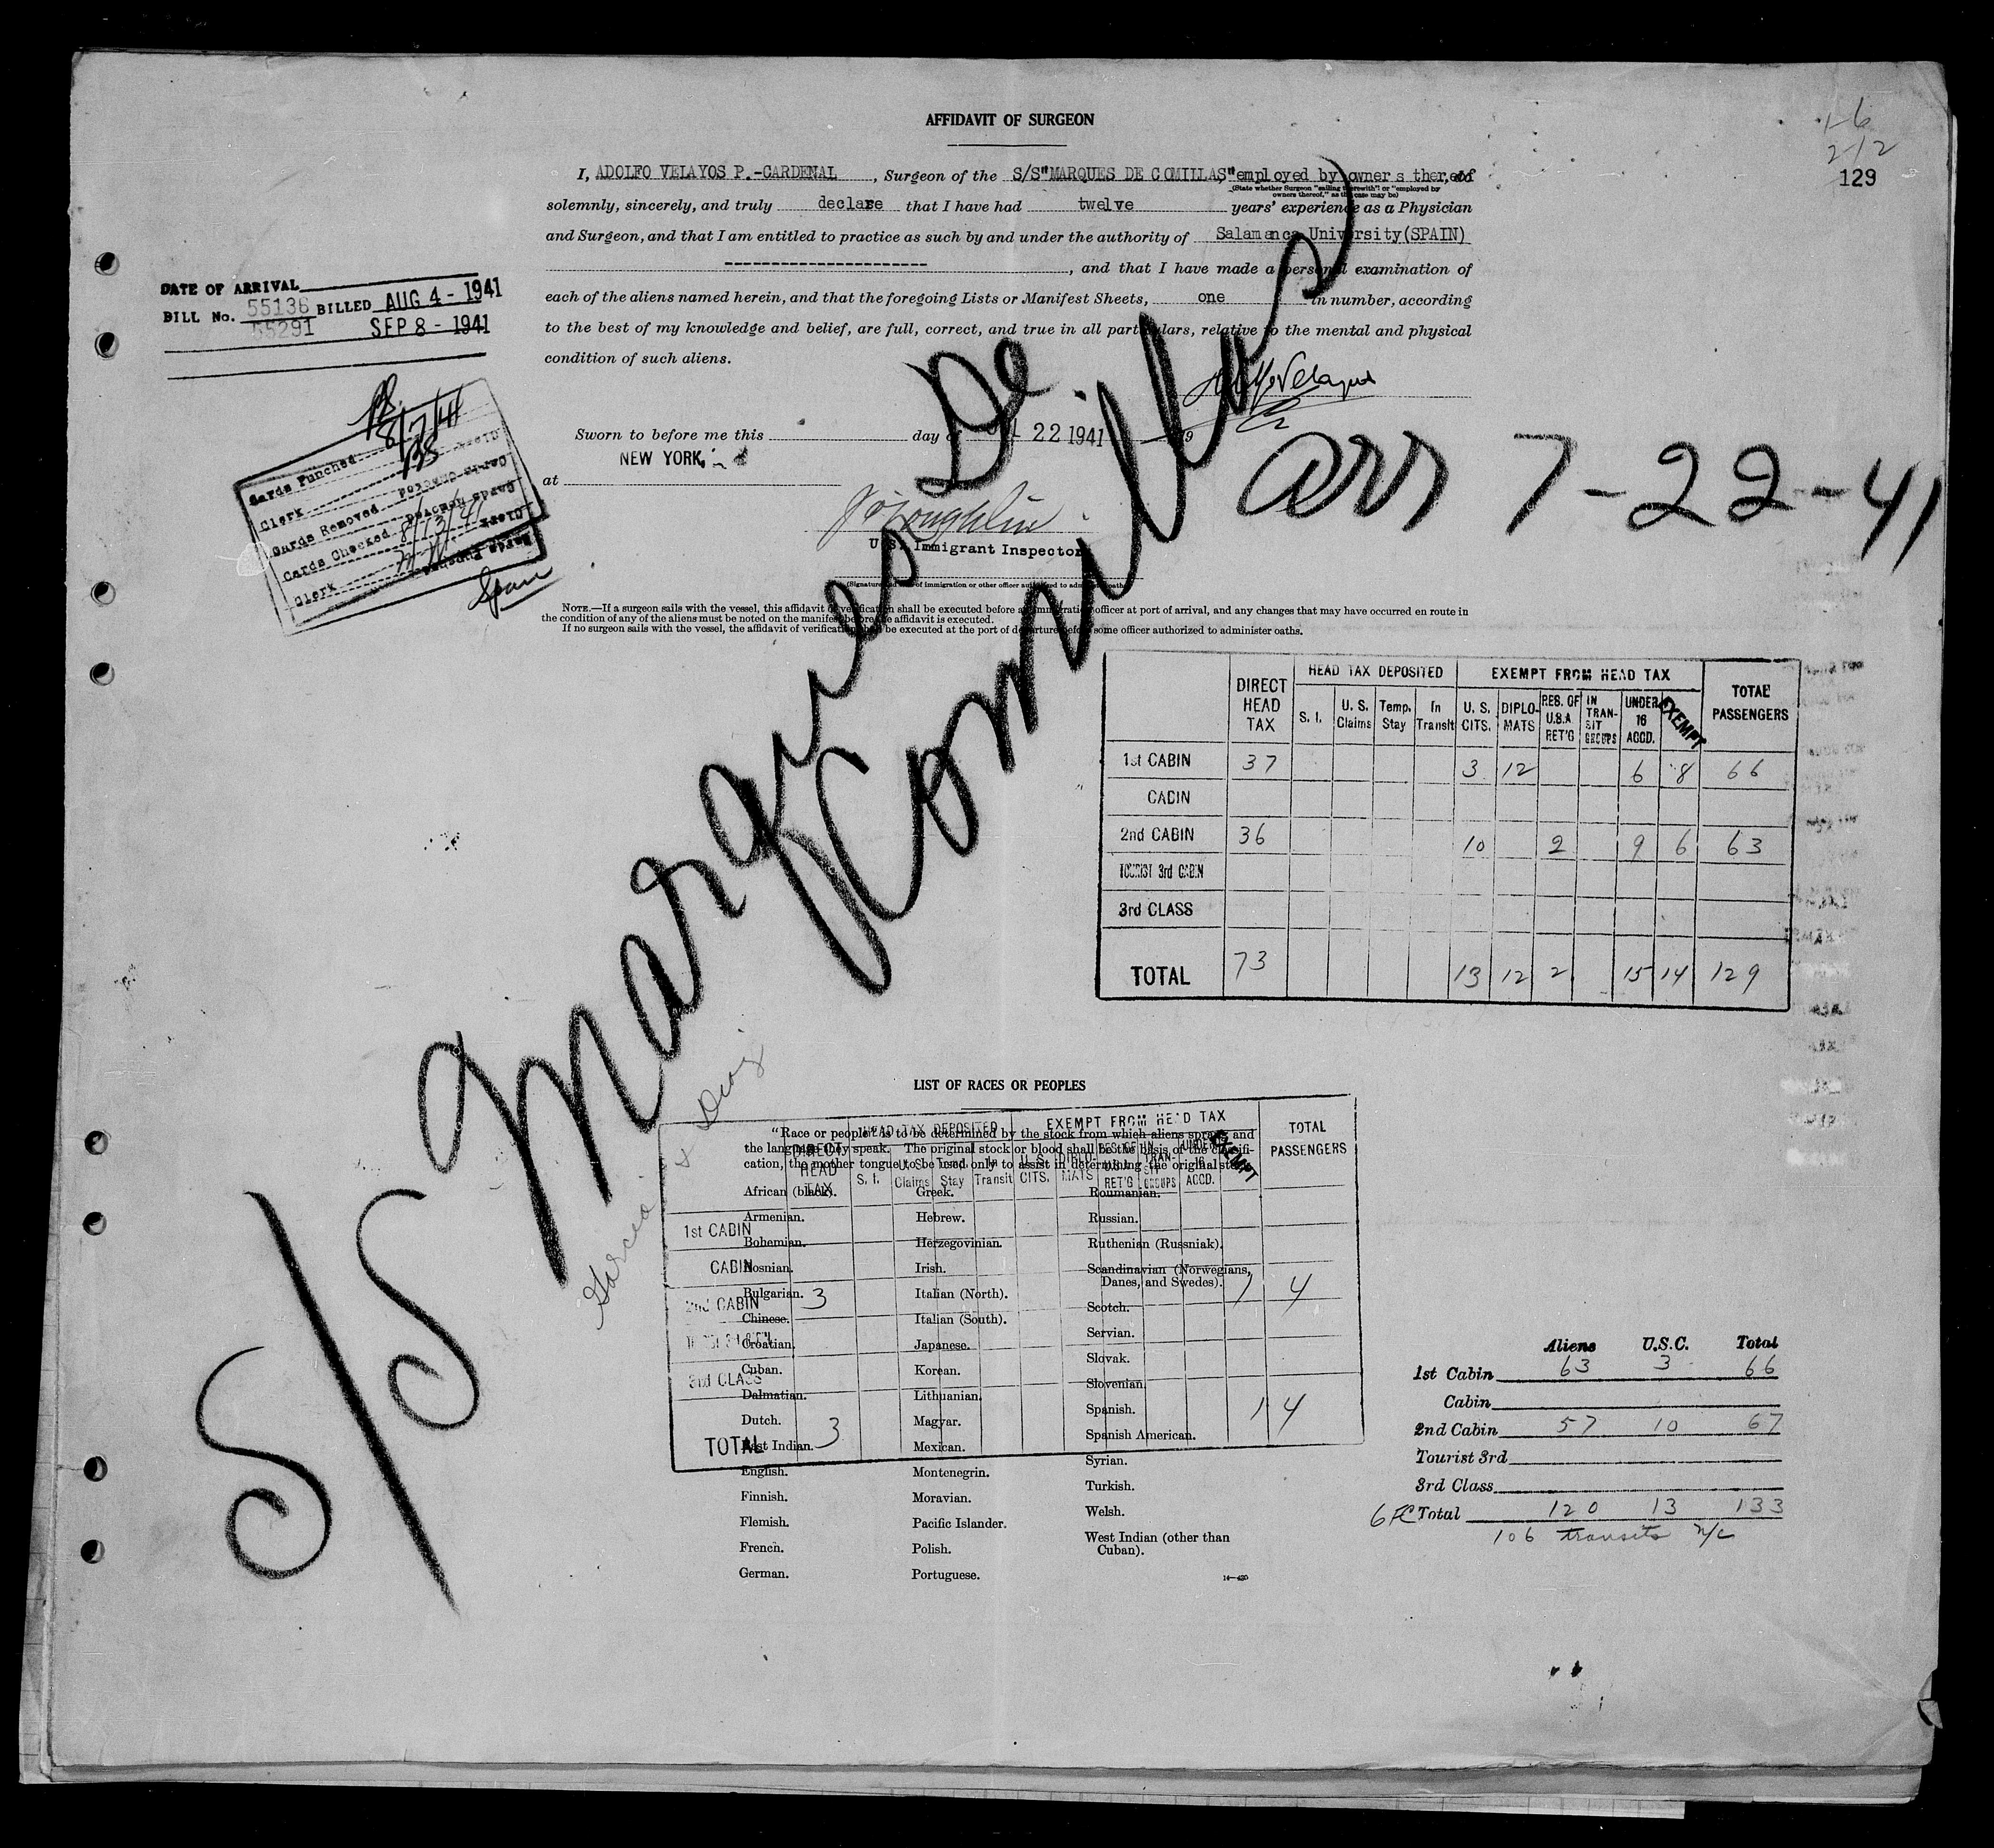 AFFIDAVIT OF SURGEON
1-6
2/2
129
I, ADOLFO VELAYOS P.-CARDENAL, Surgeon of the S/S"MARQUES DE COMILLAS" employed by owner s thereof
(State whether Surgeon "sailing therewith" or "employed by
owners thereof," as the case may be)
solemnly, sincerely, and truly declare that I have had twelve years' experience as a Physician
and Surgeon, and that I am entitled to practice as such by and under the authority of Salamanca University(SPAIN)
----------------------, and that I have made a personal examination of
each of the aliens named herein, and that the foregoing Lists or Manifest Sheets, one in number, according
to the best of my knowledge and belief, are full, correct, and true in all particulars, relative to the mental and physical
condition of such aliens.
DATE OF ARRIVAL
BILL No. 55136 BILLED AUG 4 - 1941
55291 SEP 8 - 1941
8/7/41
Cards Punched
Clerk
Cards Removed
Cards Checked 8/13/41
Clerk
Sworn to before me this day of 22 1941
NEW YORK,
at
U.S. Immigrant Inspector
arr 7-22-41
S/S Marques De
Comillas
NOTE.—If a surgeon sails with the vessel, this affidavit of verification shall be executed before an immigration officer at port of arrival, and any changes that may have occurred en route in
the condition of any of the aliens must be noted on the manifest before the affidavit is executed.
If no surgeon sails with the vessel, the affidavit of verification shall be executed at the port of departure before some officer authorized to administer oaths.
DIRECT HEAD TAX HEAD TAX DEPOSITED EXEMPT FROM HEAD TAX TOTAL PASSENGERS
S. I. U. S. Claims Temp. Stay In Transit U. S. CITS. DIPLOMATS RES. OF U.S.A. RET'G IN TRANSIT GROUPS UNDER 16 ACCD. EXEMPT
1st CABIN 37 3 12 6 8 66
CABIN
2nd CABIN 36 10 2 9 6 63
TOURIST 3rd CABIN
3rd CLASS
TOTAL 73 13 12 2 15 14 129
Garcia
LIST OF RACES OR PEOPLES
"Race or people" is to be determined by the stock from which aliens sprang and
the language they speak. The original stock or blood shall be the basis of the classifi-
cation, the mother tongue to be used only to assist in determining the original stock.
DIRECT HEAD TAX HEAD TAX DEPOSITED EXEMPT FROM HEAD TAX TOTAL PASSENGERS
S. I. U. S. Claims Temp. Stay In Transit U. S. CITS. DIPLOMATS RES. OF U.S.A. RET'G IN TRANSIT GROUPS UNDER 16 ACCD. EXEMPT
1st CABIN
CABIN
2nd CABIN 3 1 4
3rd CLASS
TOTAL 3 1 4
African (black).
Armenian.
Bohemian.
Bosnian.
Bulgarian.
Chinese.
Croatian.
Cuban.
Dalmatian.
Dutch.
East Indian.
English.
Finnish.
Flemish.
French.
German.
Greek.
Hebrew.
Herzegovinian.
Irish.
Italian (North).
Italian (South).
Japanese.
Korean.
Lithuanian.
Magyar.
Mexican.
Montenegrin.
Moravian.
Pacific Islander.
Polish.
Portuguese.
Roumanian.
Russian.
Ruthenian (Russniak).
Scandinavian (Norwegians,
Danes, and Swedes).
Scotch.
Servian.
Slovak.
Slovenian.
Spanish.
Spanish American.
Syrian.
Turkish.
Welsh.
West Indian (other than
Cuban).
Aliens U.S.C. Total
1st Cabin 63 3 66
Cabin
2nd Cabin 57 10 67
Tourist 3rd
3rd Class
Total 120 13 133
106 transits